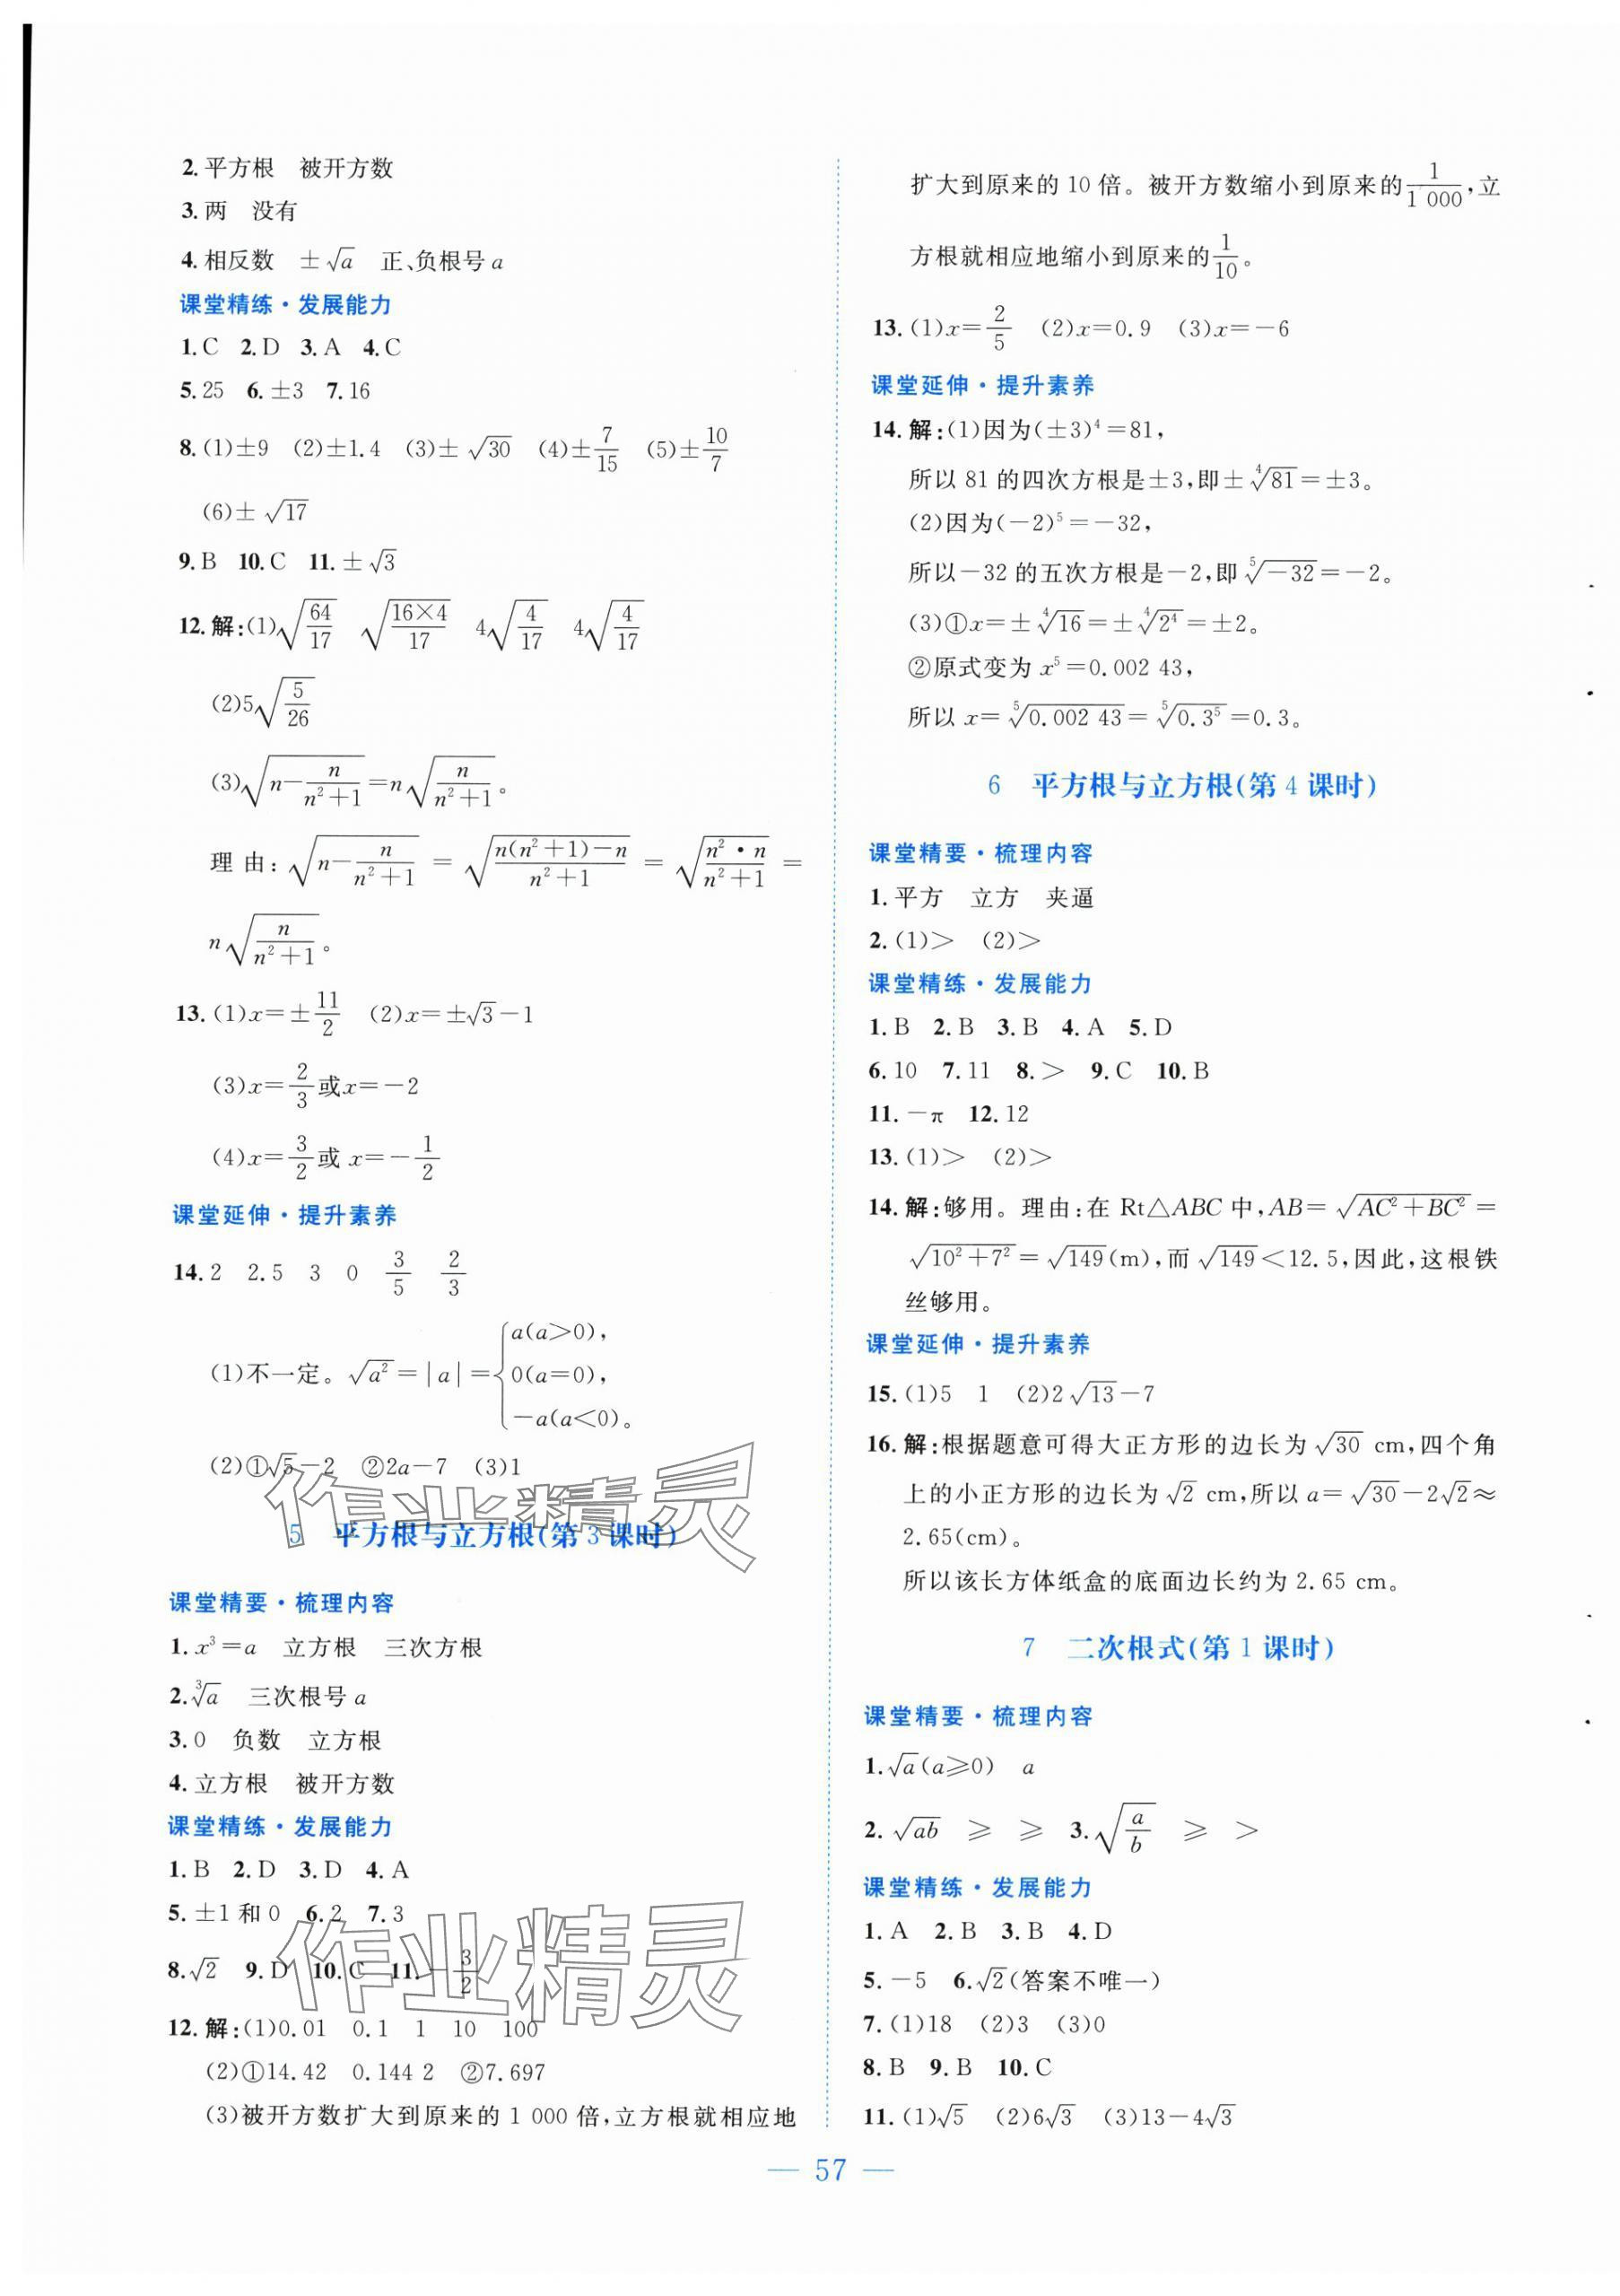 2.平方根　被开方数
3.两　没有
4.相反数　±√a　正、负根号a
课堂精练·发展能力
1.C　2.D　3.A　4.C
5.25　6.±3　7.16
8.(1)±9　(2)±1.4　(3)±√30　(4)±7/15　(5)±10/7
(6)±√17
9.B　10.C　11.±√3
12.解:(1)√(64/17)　√((16×4)/17)　4√(4/17)　4√(4/17)
(2)5√(5/26)
(3)√(n－n/(n²＋1))＝n√(n/(n²＋1))。
理由:√(n－n/(n²＋1))＝√((n(n²＋1)－n)/(n²＋1))＝√((n²·n)/(n²＋1))＝
n√(n/(n²＋1))。
13.(1)x＝±11/2　(2)x＝±√3－1
(3)x＝2/3或x＝－2
(4)x＝3/2或x＝－1/2
课堂延伸·提升素养
14.2　2.5　3　0　3/5　2/3
(1)不一定。√(a²)＝|a|＝{a(a>0),
0(a＝0),
－a(a<0)。
(2)①√5－2　②2a－7　(3)1
5　平方根与立方根(第3课时)
课堂精要·梳理内容
1.x³＝a　立方根　三次方根
2.³√a　三次根号a
3.0　负数　立方根
4.立方根　被开方数
课堂精练·发展能力
1.B　2.D　3.D　4.A
5.±1和0　6.2　7.3
8.√2　9.D　10.C　11.－3/2
12.解:(1)0.01　0.1　1　10　100
(2)①14.42　0.144 2　②7.697
(3)被开方数扩大到原来的1 000倍,立方根就相应地
扩大到原来的10倍。被开方数缩小到原来的1/1 000,立
方根就相应地缩小到原来的1/10。
13.(1)x＝2/5　(2)x＝0.9　(3)x＝－6
课堂延伸·提升素养
14.解:(1)因为(±3)⁴＝81,
所以81的四次方根是±3,即±⁴√81＝±3。
(2)因为(－2)⁵＝－32,
所以－32的五次方根是－2,即⁵√(－32)＝－2。
(3)①x＝±⁴√16＝±⁴√(2⁴)＝±2。
②原式变为x⁵＝0.002 43,
所以x＝⁵√(0.002 43)＝⁵√(0.3⁵)＝0.3。
6　平方根与立方根(第4课时)
课堂精要·梳理内容
1.平方　立方　夹逼
2.(1)>　(2)>
课堂精练·发展能力
1.B　2.B　3.B　4.A　5.D
6.10　7.11　8.>　9.C　10.B
11.－π　12.12
13.(1)>　(2)>
14.解:够用。理由:在Rt△ABC中,AB＝√(AC²＋BC²)＝
√(10²＋7²)＝√149(m),而√149<12.5,因此,这根铁
丝够用。
课堂延伸·提升素养
15.(1)5　1　(2)2√13－7
16.解:根据题意可得大正方形的边长为√30 cm,四个角
上的小正方形的边长为√2 cm,所以a＝√30－2√2≈
2.65(cm)。
所以该长方体纸盒的底面边长约为2.65 cm。
7　二次根式(第1课时)
课堂精要·梳理内容
1.√a(a≥0)　a
2.√(ab)　≥　≥　3.√(a/b)　≥　>
课堂精练·发展能力
1.A　2.B　3.B　4.D
5.－5　6.√2(答案不唯一)
7.(1)18　(2)3　(3)0
8.B　9.B　10.C
11.(1)√5　(2)6√3　(3)13－4√3
— 57 —
作业精灵
作业精灵